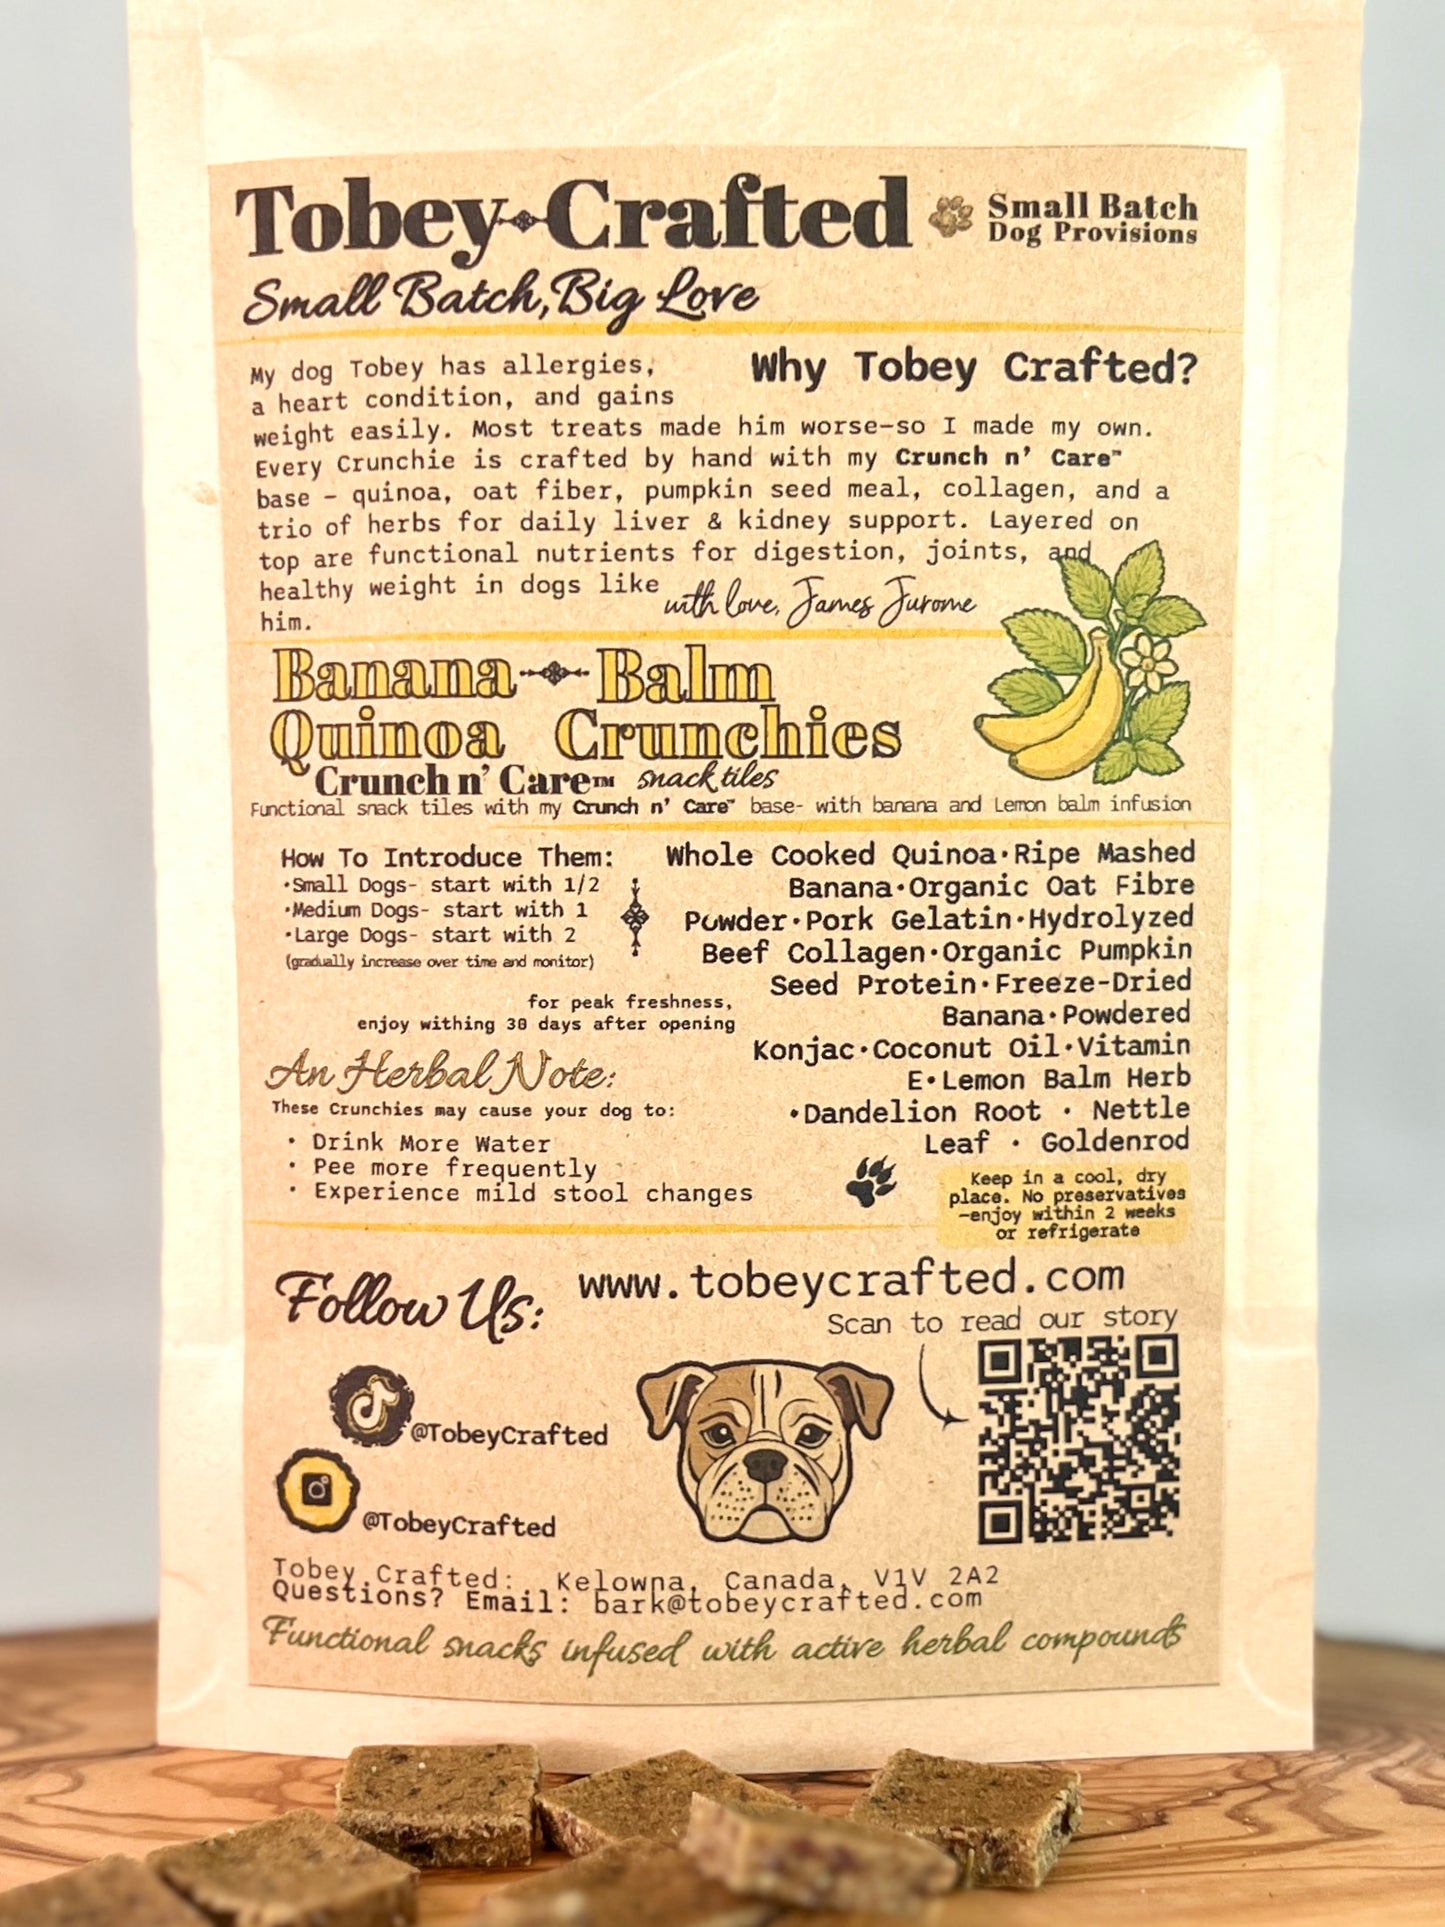 Tobey Crafted
Small Batch
Dog Provisions
Small Batch, Big Love
Why Tobey Crafted?
My dog Tobey has allergies,
a heart condition, and gains
weight easily. Most treats made him worse-so I made my own.
Every Crunchie is crafted by hand with my Crunch n' Care™
base - quinoa, oat fiber, pumpkin seed meal, collagen, and a
trio of herbs for daily liver & kidney support. Layered on
top are functional nutrients for digestion, joints, and
healthy weight in dogs like
him.
with love, James Jurome
Banana Balm
Quinoa Crunchies
Crunch n' Care™ snack tiles
Functional snack tiles with my Crunch n' Care™ base- with banana and Lemon balm infusion
How To Introduce Them:
·Small Dogs- start with 1/2
·Medium Dogs- start with 1
·Large Dogs- start with 2
(gradually increase over time and monitor)
for peak freshness,
enjoy withing 30 days after opening
Whole Cooked Quinoa·Ripe Mashed
Banana·Organic Oat Fibre
Powder·Pork Gelatin·Hydrolyzed
Beef Collagen·Organic Pumpkin
Seed Protein·Freeze-Dried
Banana·Powdered
Konjac·Coconut Oil·Vitamin
E·Lemon Balm Herb
·Dandelion Root · Nettle
Leaf · Goldenrod
An Herbal Note:
These Crunchies may cause your dog to:
· Drink More Water
· Pee more frequently
· Experience mild stool changes
Keep in a cool, dry
place. No preservatives
-enjoy within 2 weeks
or refrigerate
Follow Us:
www.tobeycrafted.com
Scan to read our story
@TobeyCrafted
@TobeyCrafted
Tobey Crafted: Kelowna, Canada, V1V 2A2
Questions? Email: bark@tobeycrafted.com
Functional snacks infused with active herbal compounds